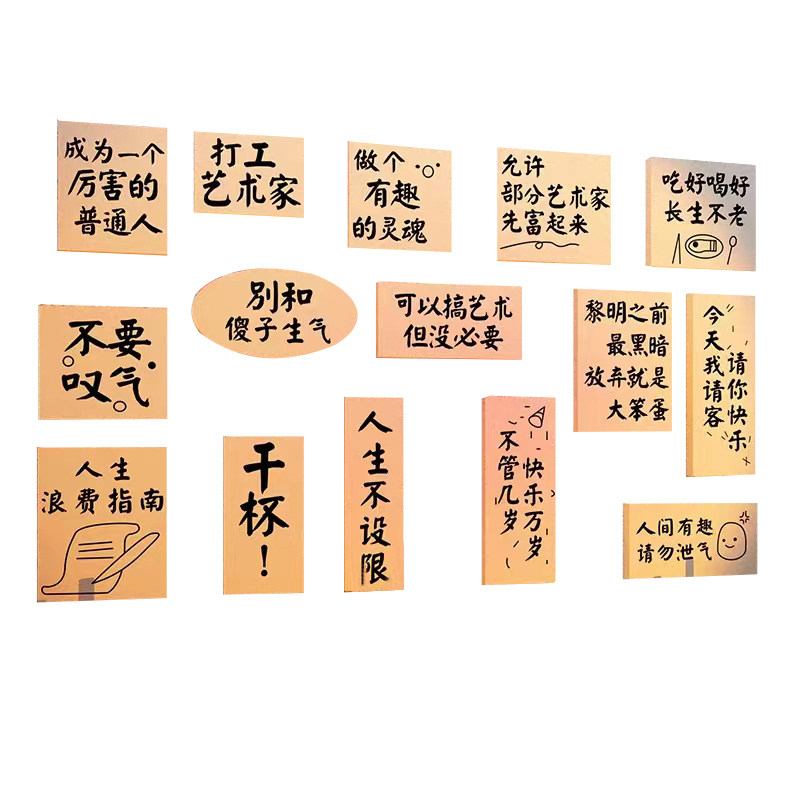 成为一个
厉害的
普通人
打工
艺术家
做个
有趣
的灵魂
允许
部分艺术家
先富起来
吃好喝好
长生不老
不要
叹气
别和
傻子生气
可以搞艺术
但没必要
黎明之前
最黑暗
放弃就是
大笨蛋
今天我请客
请你快乐
人生
浪费指南
干杯!
人生不设限
不管几岁
快乐万岁
人间有趣
请勿泄气